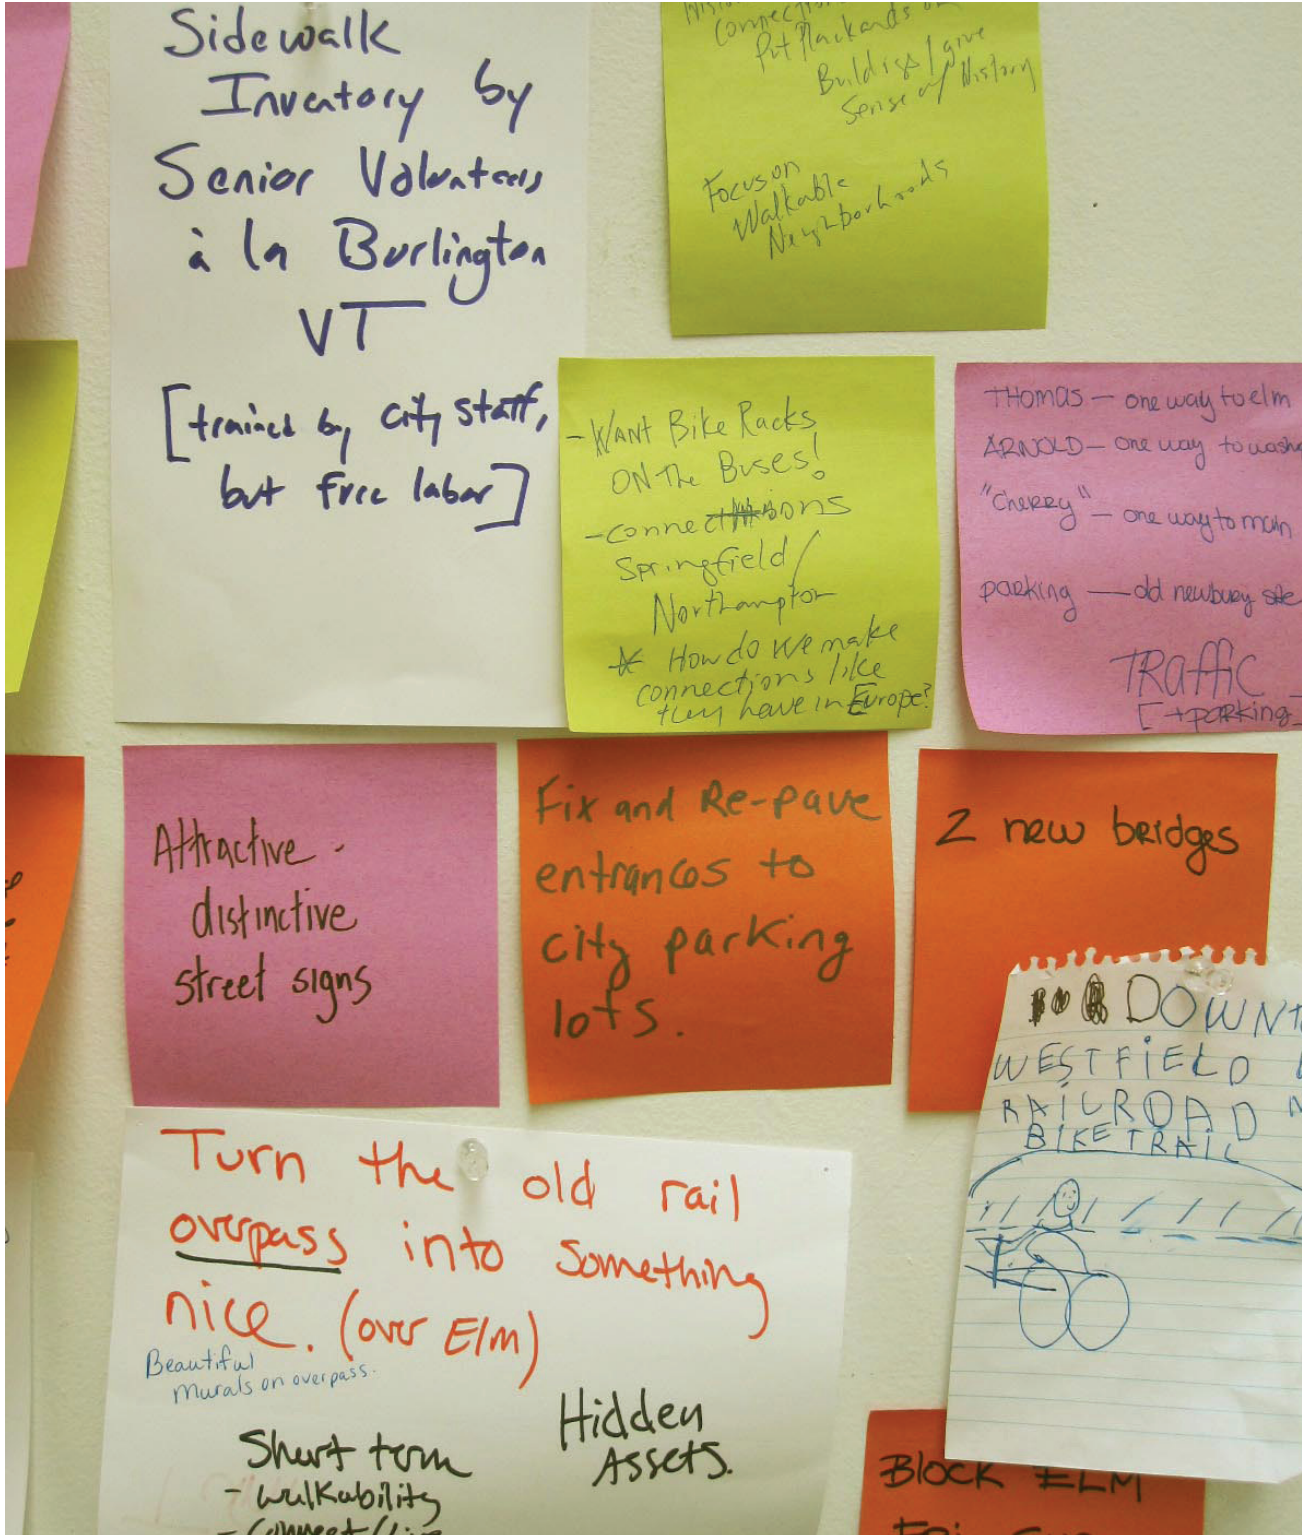 Sidewalk
Inventory by
Senior Volunteers
à la Burlington
VT
[trained by city staff,
but free labor]
connection
Put Plackards
Buildigs / give
Sense of History
Focus on
Walkable
Neighborhoods
- WANT Bike Racks
ON the Buses!
- connections
Springfield /
Northampton
* How do we make
connections like
they have in Europe?
THOMAS — one way to elm
ARNOLD — one way to washi
"Cherry" — one way to main
parking — old newbury site
TRAffic
[+parking
Attractive -
distinctive
street signs
Fix and Re-pave
entrances to
city parking
lots.
2 new bridges
DOWNT
WESTFIELD
RAILROAD
BIKE TRAIL
Turn the old rail
overpass into something
nice. (over Elm)
Beautiful
murals on overpass.
Hidden
Assets.
Short term
- walkability
- connect/
BLOCK ELM